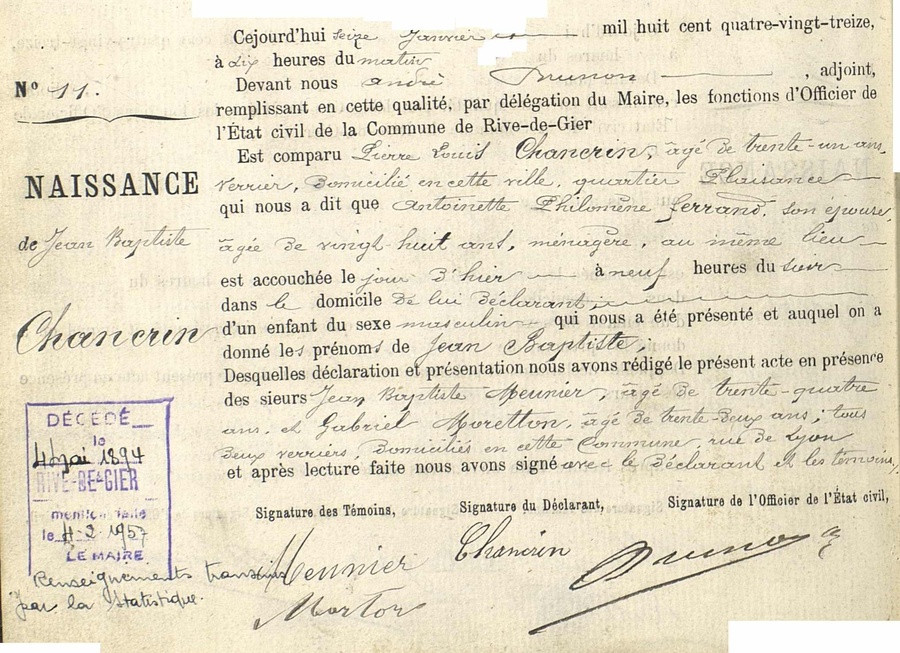 Cejourd'hui seize Janvier mil huit cent quatre-vingt-treize,
à dix heures du matin
Devant nous André Brunon , adjoint,
remplissant en cette qualité, par délégation du Maire, les fonctions d'Officier de
l'État civil de la Commune de Rive-de-Gier
Est comparu Pierre Louis Chancrin, âgé de trente-un ans,
verrier, domicilié en cette ville, quartier Plaisance
qui nous a dit que Antoinette Philomène Ferrand, son épouse,
âgée de vingt-huit ans, ménagère, au même lieu
est accouchée le jour d'hier à neuf heures du soir
dans le domicile de lui déclarant,
d'un enfant du sexe masculin qui nous a été présenté et auquel on a
donné les prénoms de Jean Baptiste,
Desquelles déclaration et présentation nous avons rédigé le présent acte en présence
des sieurs Jean Baptiste Meunier, âgé de trente-quatre
ans, et Gabriel Moretton, âgé de trente-deux ans; tous
deux verriers, domiciliés en cette Commune, rue de Lyon
et après lecture faite nous avons signé avec le déclarant et les témoins.
Signature des Témoins, Signature du Déclarant, Signature de l'Officier de l'État civil,
Meunier Chancrin Brunon
N° 11.
NAISSANCE
de Jean Baptiste
Chancrin
DÉCÉDÉ
le
4 Mai 1894
RIVE-DE-GIER
mention faite
le 4-2-1957
LE MAIRE
Renseignements transmis
par la Statistique.